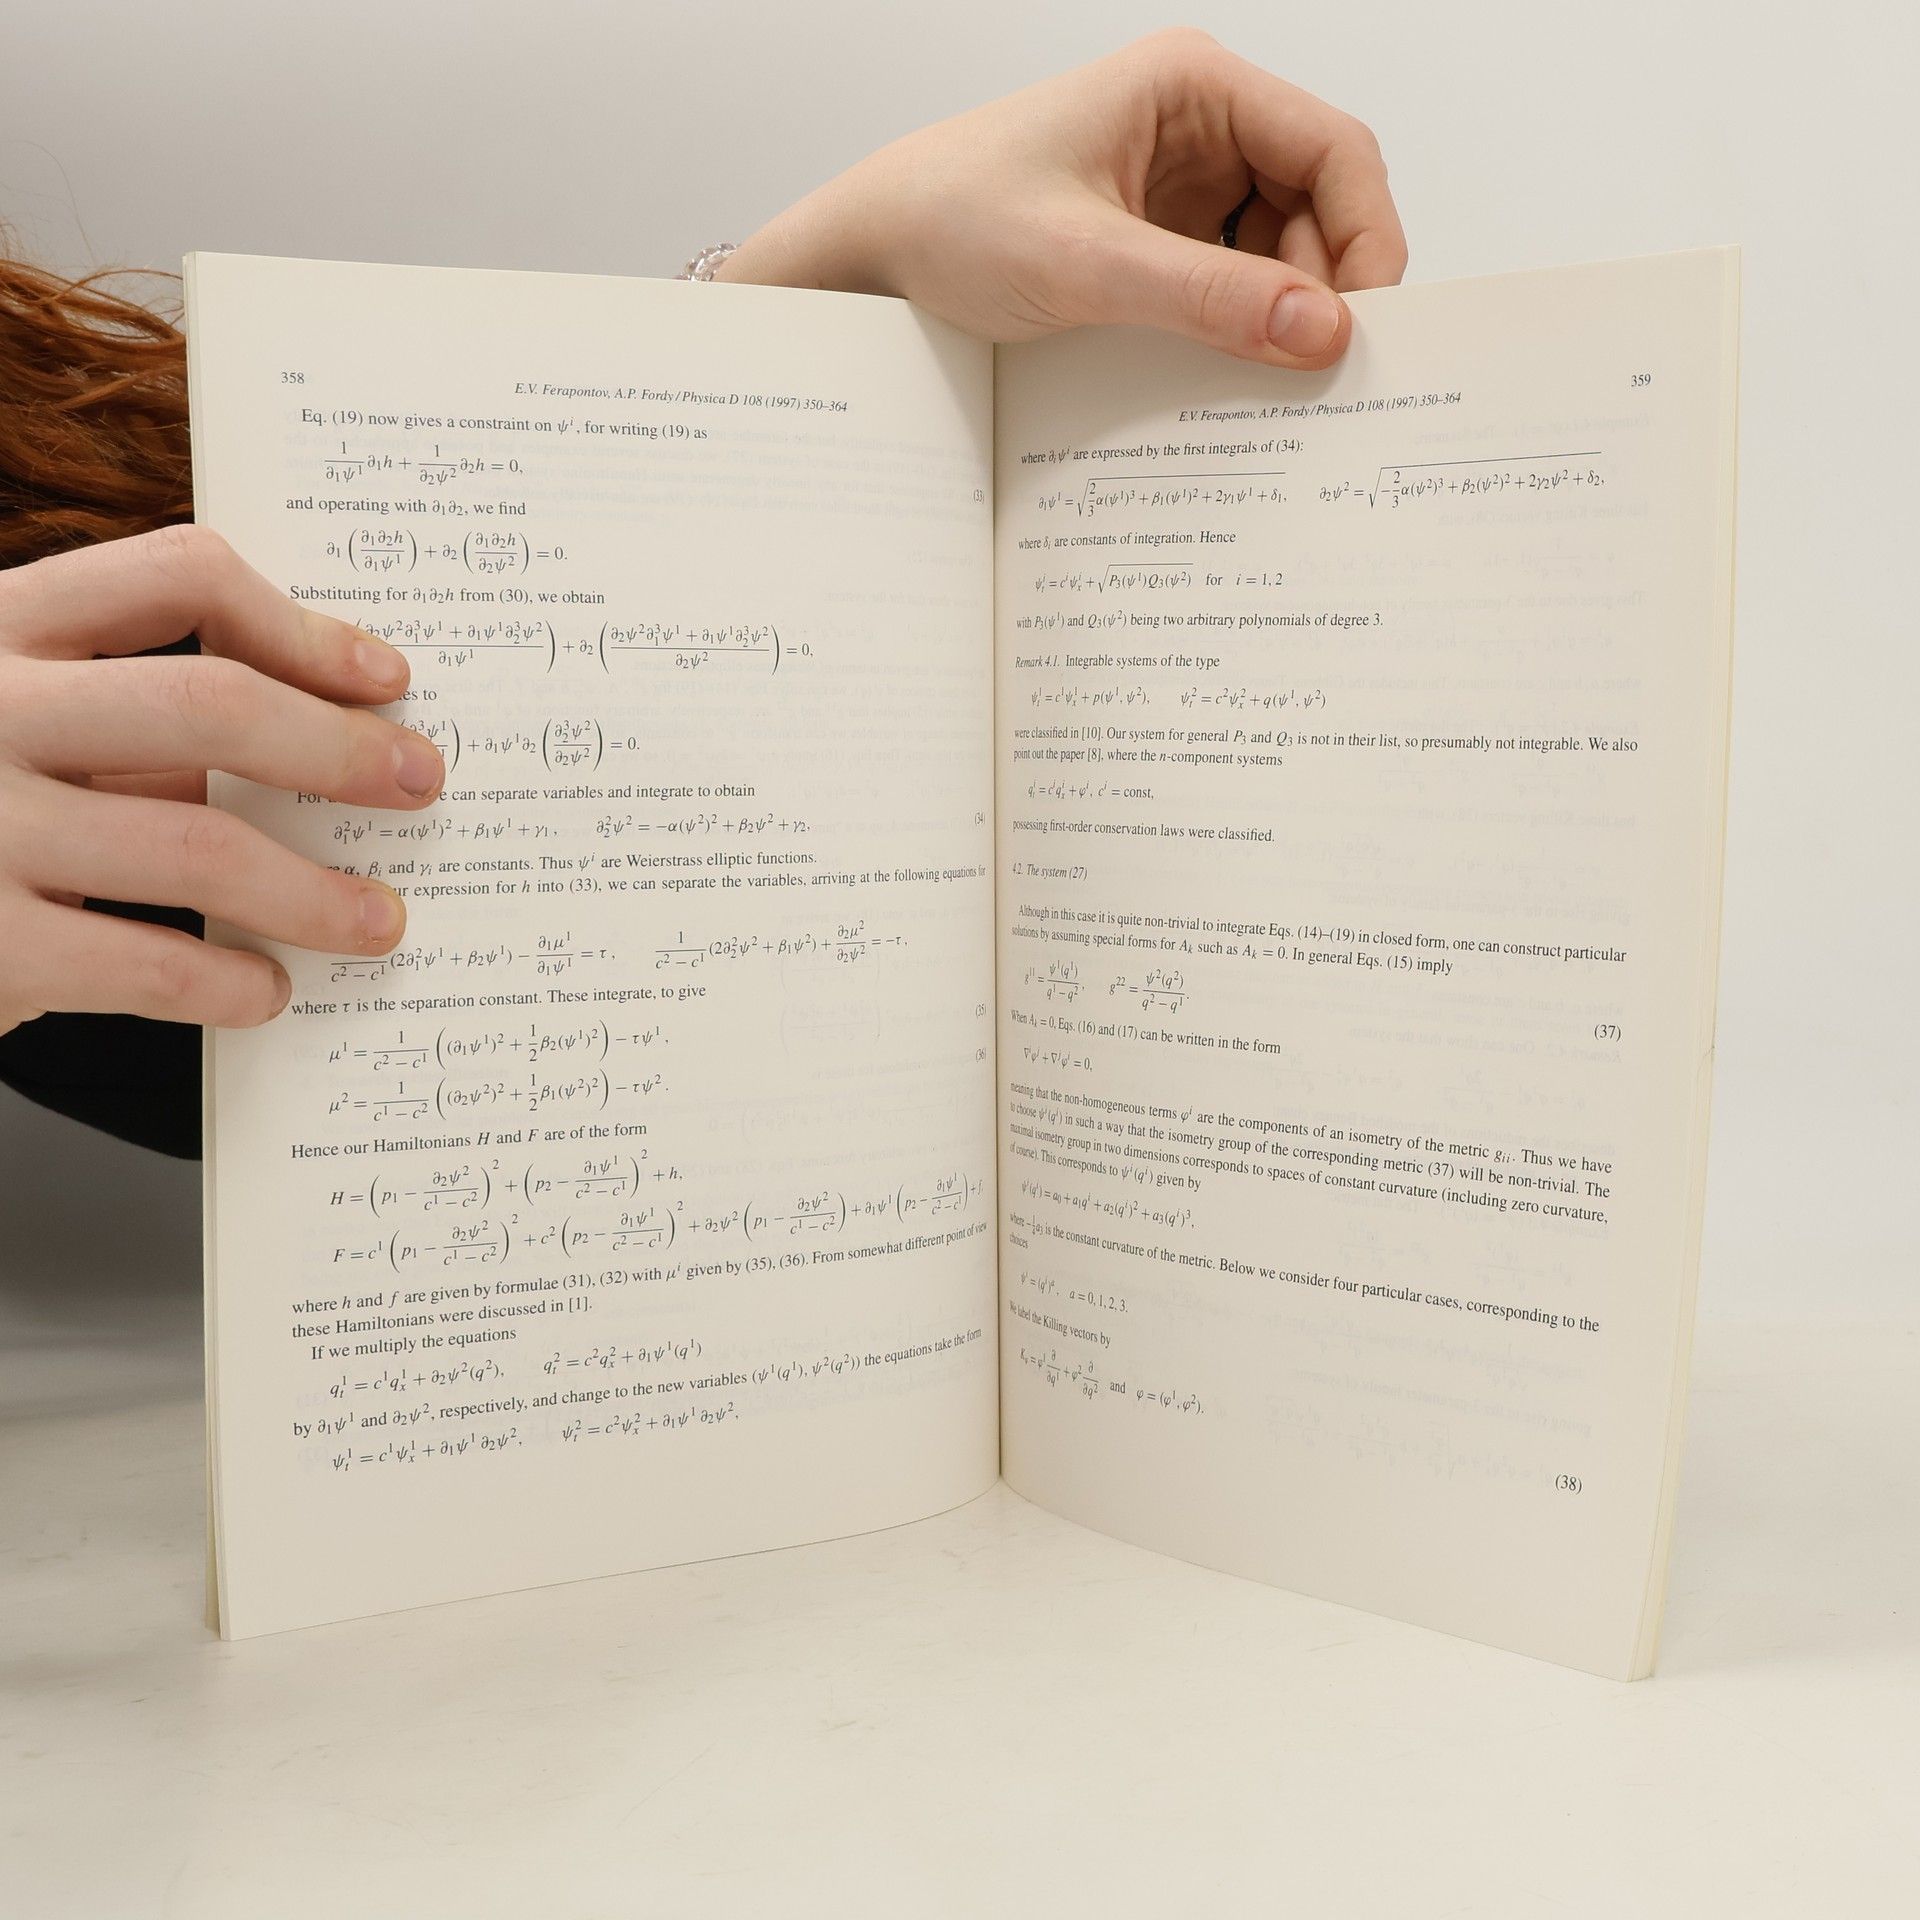 358
E.V. Ferapontov, A.P. Fordy / Physica D 108 (1997) 350–364
Eq. (19) now gives a constraint on ψ^i, for writing (19) as
1/(∂₁ψ¹) ∂₁h + 1/(∂₂ψ²) ∂₂h = 0, (33)
and operating with ∂₁∂₂, we find
∂₁(∂₁∂₂h/∂₁ψ¹) + ∂₂(∂₁∂₂h/∂₂ψ²) = 0.
Substituting for ∂₁∂₂h from (30), we obtain
(∂₂ψ²∂₁³ψ¹ + ∂₁ψ¹∂₂³ψ²)/∂₁ψ¹) + ∂₂((∂₂ψ²∂₁³ψ¹ + ∂₁ψ¹∂₂³ψ²)/∂₂ψ²) = 0,
to
(∂³ψ¹) + ∂₁ψ¹∂₂(∂₂³ψ²/∂₂ψ²) = 0.
can separate variables and integrate to obtain
∂₁²ψ¹ = α(ψ¹)² + β₁ψ¹ + γ₁, ∂₂²ψ² = −α(ψ²)² + β₂ψ² + γ₂, (34)
α, β_i and γ_i are constants. Thus ψ^i are Weierstrass elliptic functions.
expression for h into (33), we can separate the variables, arriving at the following equations for
/(c² − c¹)(2∂₁²ψ¹ + β₂ψ¹) − ∂₁μ¹/∂₁ψ¹ = τ, 1/(c² − c¹)(2∂₂²ψ² + β₁ψ²) + ∂₂μ²/∂₂ψ² = −τ,
where τ is the separation constant. These integrate, to give
μ¹ = 1/(c² − c¹)((∂₁ψ¹)² + ½β₂(ψ¹)²) − τψ¹, (35)
μ² = 1/(c¹ − c²)((∂₂ψ²)² + ½β₁(ψ²)²) − τψ². (36)
Hence our Hamiltonians H and F are of the form
H = (p₁ − ∂₂ψ²/(c¹ − c²))² + (p₂ − ∂₁ψ¹/(c² − c¹))² + h,
F = c¹(p₁ − ∂₂ψ²/(c¹ − c²))² + c²(p₂ − ∂₁ψ¹/(c² − c¹))² + ∂₂ψ²(p₁ − ∂₂ψ²/(c¹ − c²)) + ∂₁ψ¹(p₂ − ∂₁ψ¹/(c² − c¹)) + f,
where h and f are given by formulae (31), (32) with μ^i given by (35), (36). From somewhat different point of view
these Hamiltonians were discussed in [1].
If we multiply the equations
q_t¹ = c¹q_x¹ + ∂₂ψ²(q²), q_t² = c²q_x² + ∂₁ψ¹(q¹)
by ∂₁ψ¹ and ∂₂ψ², respectively, and change to the new variables (ψ¹(q¹), ψ²(q²)) the equations take the form
ψ_t¹ = c¹ψ_x¹ + ∂₁ψ¹ ∂₂ψ², ψ_t² = c²ψ_x² + ∂₁ψ¹ ∂₂ψ²,
359
E.V. Ferapontov, A.P. Fordy / Physica D 108 (1997) 350–364
where ∂_iψ^i are expressed by the first integrals of (34):
∂₁ψ¹ = √(⅔α(ψ¹)³ + β₁(ψ¹)² + 2γ₁ψ¹ + δ₁), ∂₂ψ² = √(−⅔α(ψ²)³ + β₂(ψ²)² + 2γ₂ψ² + δ₂),
where δ_i are constants of integration. Hence
ψ_t^i = c^iψ_x^i + √(P₃(ψ¹)Q₃(ψ²)) for i = 1, 2
with P₃(ψ¹) and Q₃(ψ²) being two arbitrary polynomials of degree 3.
Remark 4.1. Integrable systems of the type
ψ_t¹ = c¹ψ_x¹ + p(ψ¹, ψ²), ψ_t² = c²ψ_x² + q(ψ¹, ψ²)
were classified in [10]. Our system for general P₃ and Q₃ is not in their list, so presumably not integrable. We also
point out the paper [8], where the n-component systems
q_t^i = c^iq_x^i + φ^i, c^i = const,
possessing first-order conservation laws were classified.
4.2. The system (27)
Although in this case it is quite non-trivial to integrate Eqs. (14)–(19) in closed form, one can construct particular
solutions by assuming special forms for A_k such as A_k = 0. In general Eqs. (15) imply
g¹¹ = ψ¹(q¹)/(q¹ − q²), g²² = ψ²(q²)/(q² − q¹). (37)
When A_k = 0, Eqs. (16) and (17) can be written in the form
∇^iφ^j + ∇^jφ^i = 0,
meaning that the non-homogeneous terms φ^i are the components of an isometry of the metric g_ii. Thus we have
to choose ψ^i(q^i) in such a way that the isometry group of the corresponding metric (37) will be non-trivial. The
maximal isometry group in two dimensions corresponds to spaces of constant curvature (including zero curvature,
of course). This corresponds to ψ^i(q^i) given by
ψ^i(q^i) = a₀ + a₁q^i + a₂(q^i)² + a₃(q^i)³,
where −¼a₃ is the constant curvature of the metric. Below we consider four particular cases, corresponding to the
choices
ψ^i = (q^i)^a, a = 0, 1, 2, 3.
We label the Killing vectors by
K_φ = φ¹ ∂/∂q¹ + φ² ∂/∂q² and φ = (φ¹, φ²). (38)